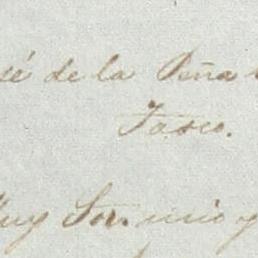 sé de la Peña
Tasco.
Muy Sor. mio y